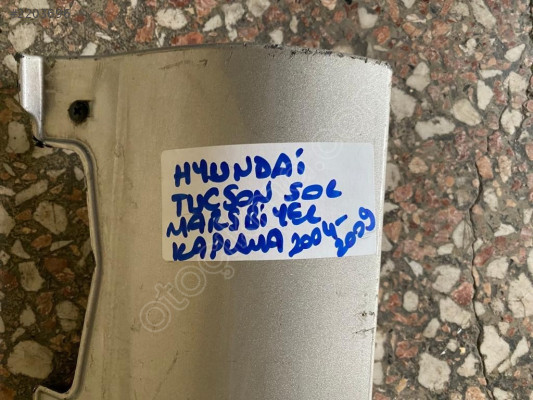 HYUNDAi
TUCSON SOL
MARŞBİYEL
KAPLAMA 2004-2009